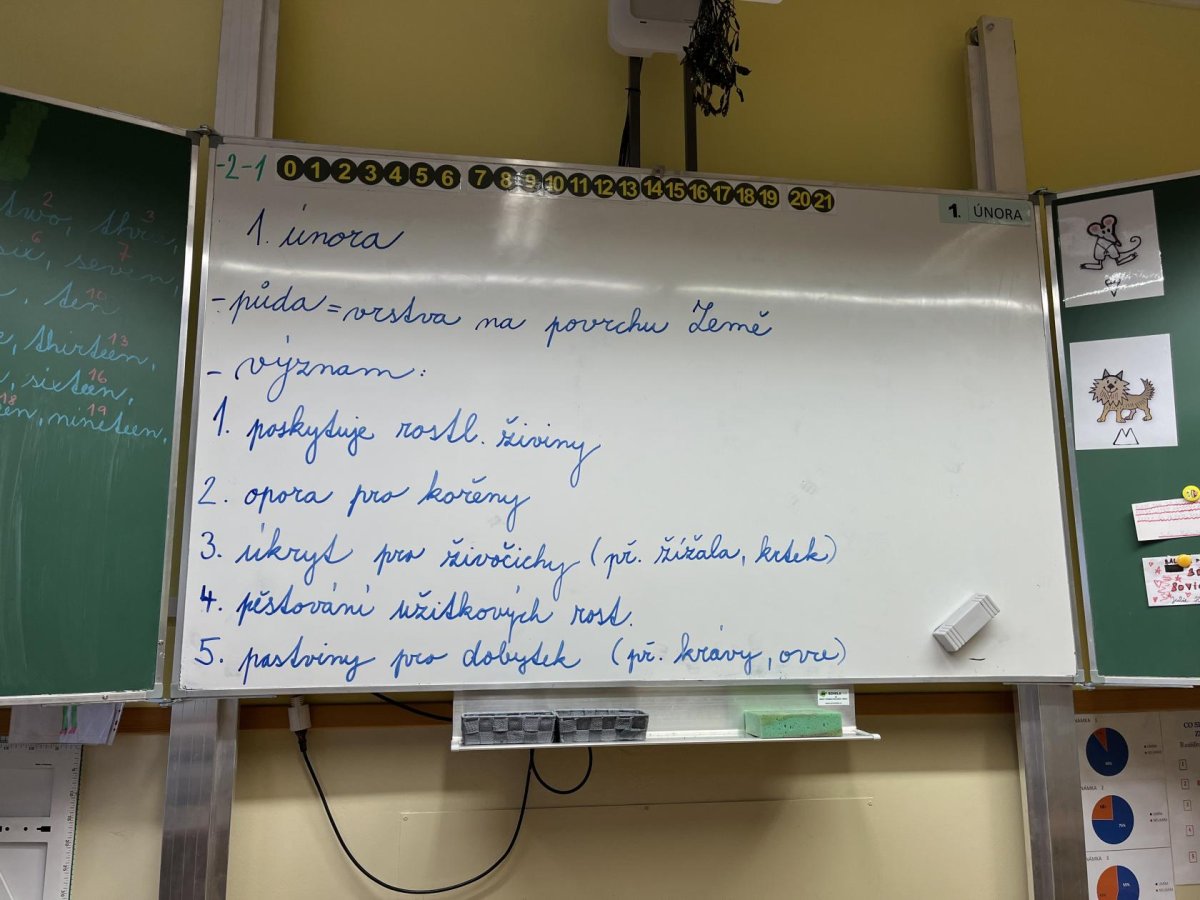 two, three,
2 3
six, seven,
6 7
ten
10
thirteen,
13
sixteen,
16
nineteen.
18 19
-2-1 0 1 2 3 4 5 6 7 8 9 10 11 12 13 14 15 16 17 18 19 20 21
1. ÚNORA
1. února
- půda = vrstva na povrchu Země
- význam:
1. poskytuje rostl. živiny
2. opora pro kořeny
3. úkryt pro živočichy (př. žížala, krtek)
4. pěstování užitkových rost.
5. pastviny pro dobytek (př. krávy, ovce)
M